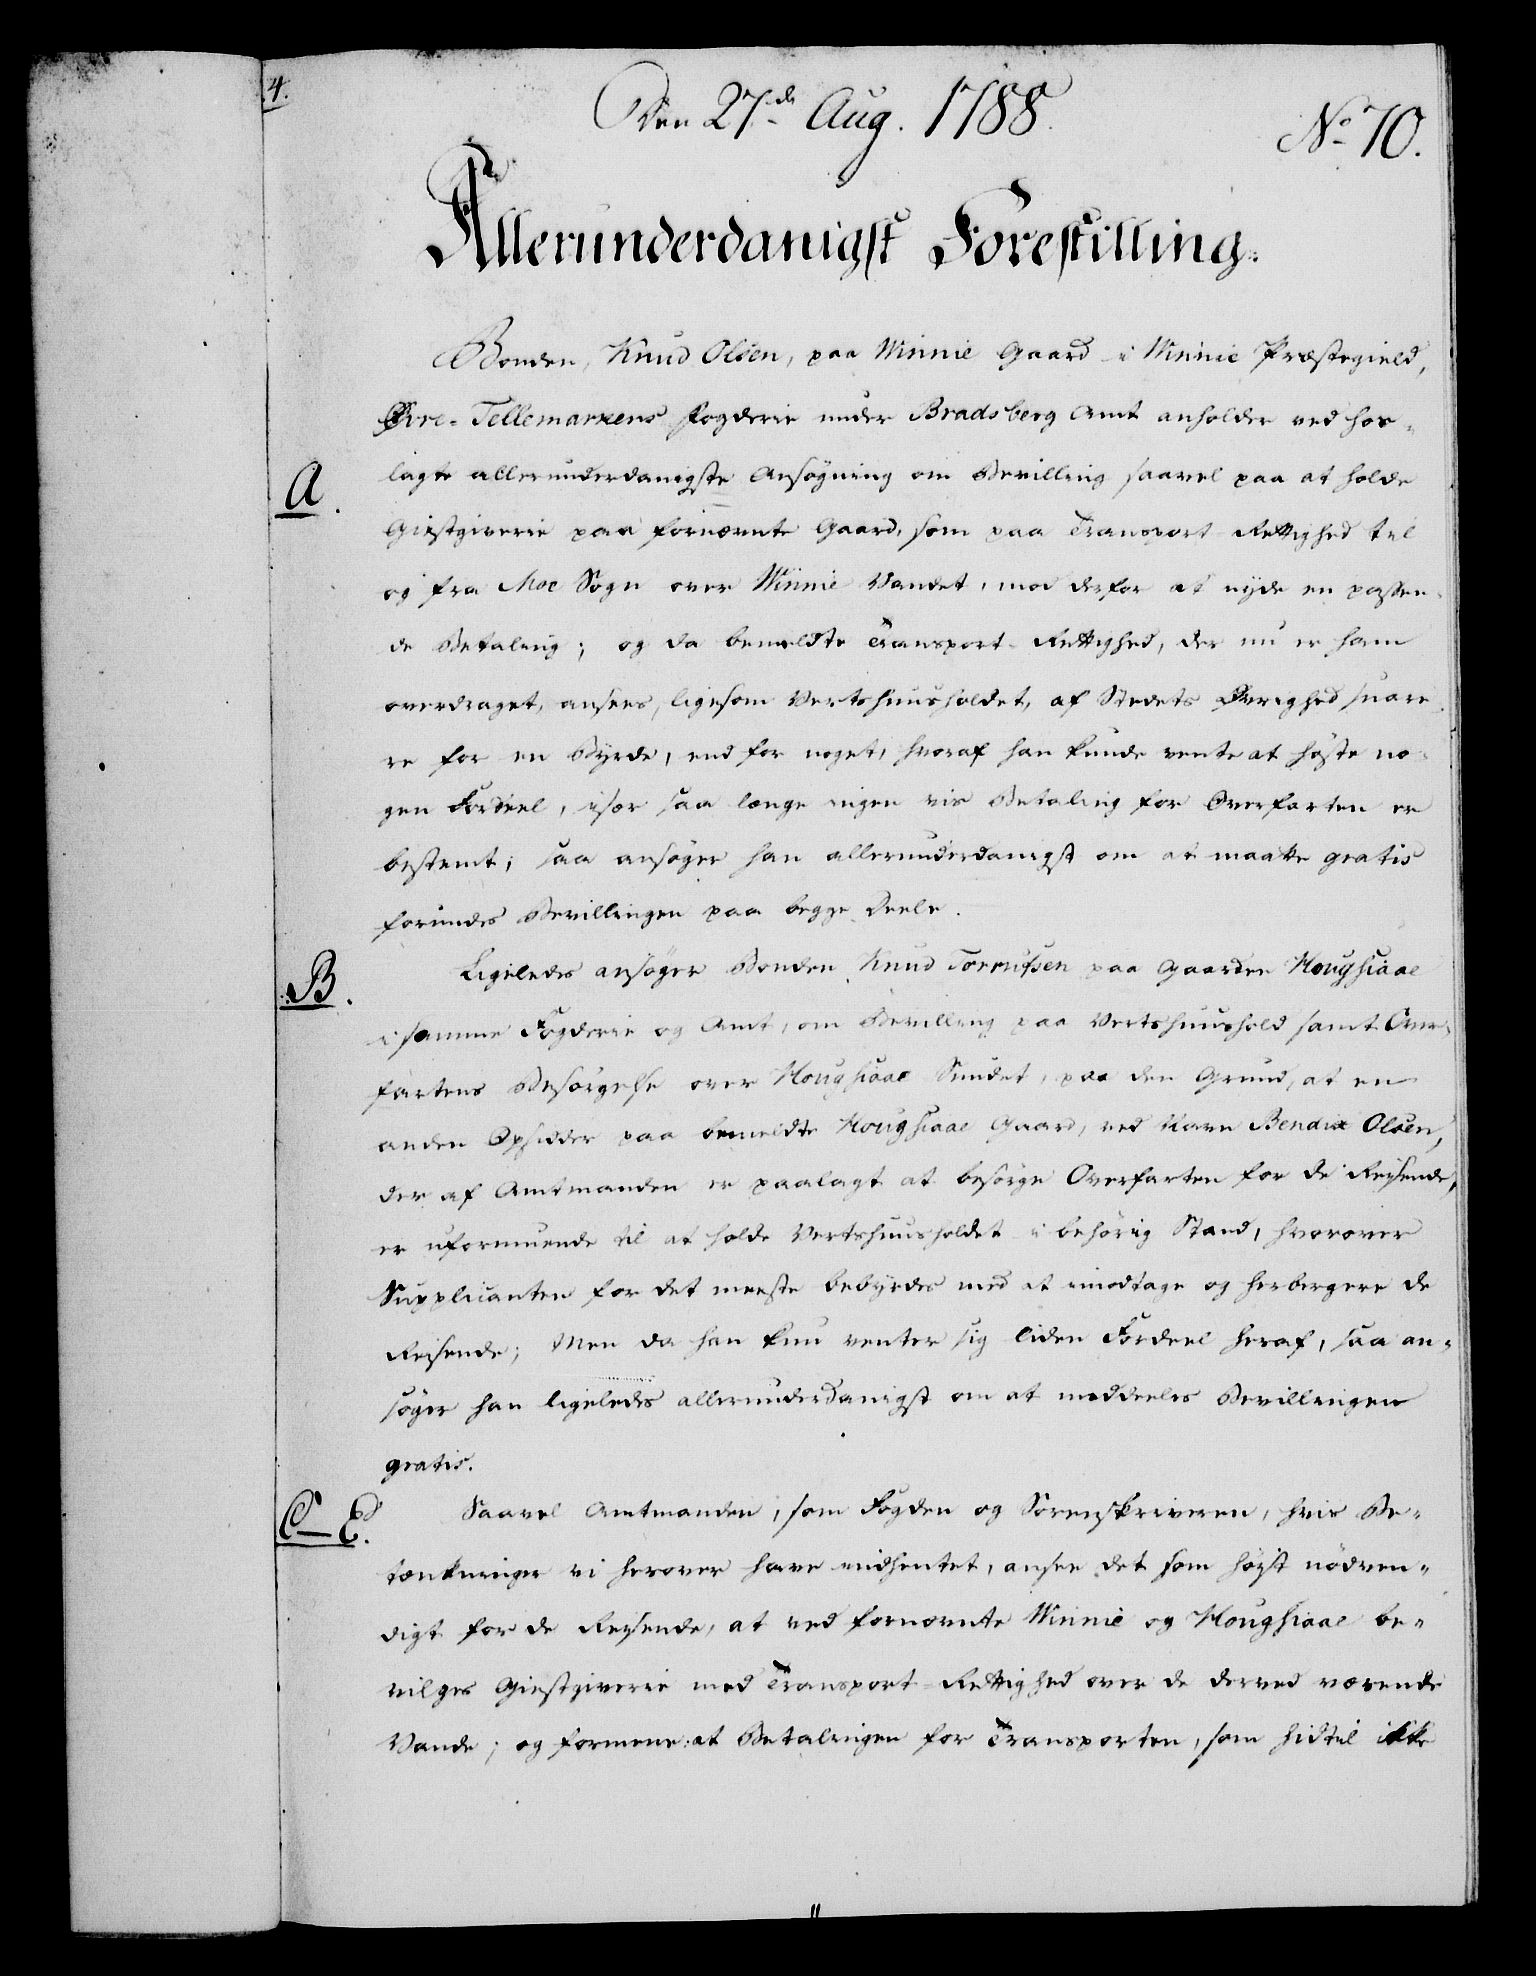 4.
Den 27de Aug. 1788.
No 70.
Allerunderdanigst Forestilling.
Bonden, Knud Olsen, paa Winnie Gaard i Winnie Præstegield,
Øvre-Tellemarkens Fogderie under Bradsberg Amt anholder ved hos-
A.
lagte allerunderdanigste Ansøgning om Bevilling saavel paa at holde
Giestgiverie paa fornævnte Gaard, som paa Transport-Rettighed til
og fra Moe Sogn over Winnie Vandet, mod derfor at nyde en passen-
de Betaling; og da bemeldte Transport-Rettighed, der nu er ham
overdraget, ansees, ligesom Vertshuusholdet, af Stedets Øvrighed snare-
re for en Byrde, end for noget, hvoraf han kunde vente at høste no-
gen Fordeel, især saa længe ingen vis Betaling for Overfarten er
bestemt; saa ansøger han allerunderdanigst om at maatte gratis
forundes Bevillingen paa begge Deele.
B.
Ligeledes ansøger Bonden Knud Torrufsen paa Gaarden Hougsiaae
i samme Fogderie og Amt, om Bevilling paa Vertshuushold samt Over-
fartens Besørgelse over Hougsiaae Sundet, paa den Grund, at en
anden Opsidder paa bemeldte Hougsiaae Gaard, ved Navn Bendix Olsen,
der af Amtmanden er paalagt at besørge Overfarten for de Reisende,
er uformuende til at holde Vertshuusholdet i behørig Stand, hvorover
Supplicanten for det meeste bebyrdes med at imodtage og herbergere de
Reisende; Men da han kun venter sig liden Fordeel heraf, saa an-
søger han ligeledes allerunderdanigst om at meddeeles Bevillingen
gratis.
C–E.
Saavel Amtmanden, som Fogden og Sorenskriveren, hvis Be-
tænkninger vi herover have indhentet, ansee det som høist nødven-
digt for de Reysende, at ved fornævnte Winnie og Hougsiaae be-
vilges Giestgiverie med Transport-Rettighed over de derved værende
Vande; og formene at Betalingen for Transporten, som hidtil ikke